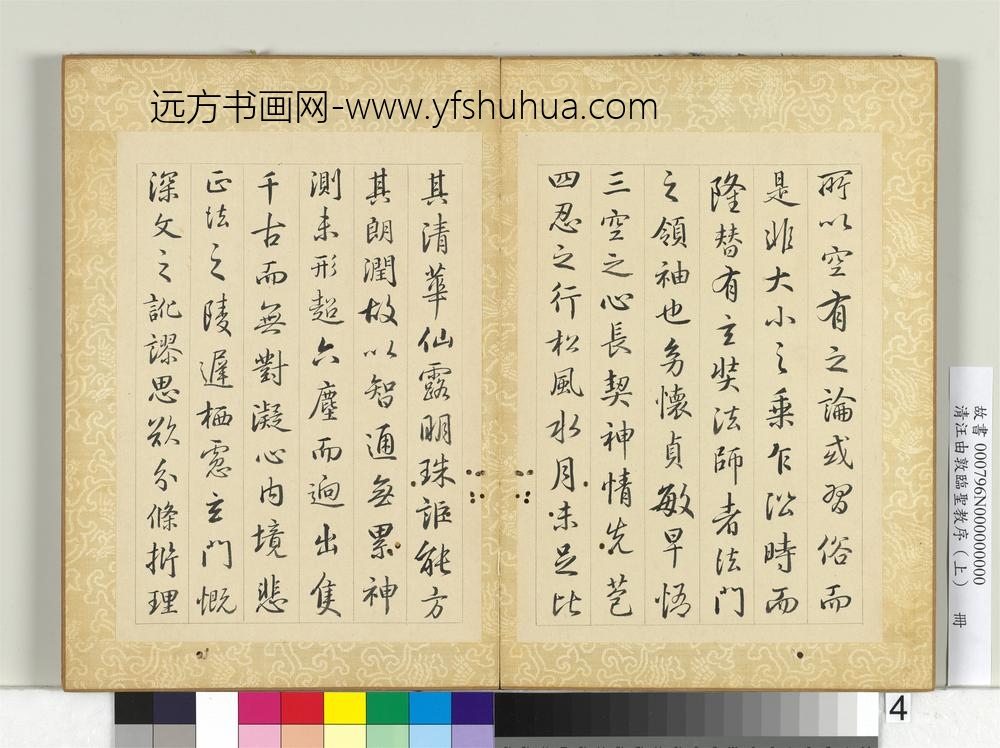 远方书画网-www.yfshuhua.com
所以空有之論或習俗而
是非大小之乘乍沿時而
隆替有玄奘法師者法門
之領袖也幼懷貞敏早悟
三空之心長契神情先苞
四忍之行松風水月未足比
其清華仙露明珠詎能方
其朗潤故以智通無累神
測未形超六塵而迥出隻
千古而無對凝心內境悲
正法之陵遲栖慮玄門慨
深文之訛謬思欲分條析理
故書 000796N000000000
清汪由敦臨聖教序(上) 冊
4